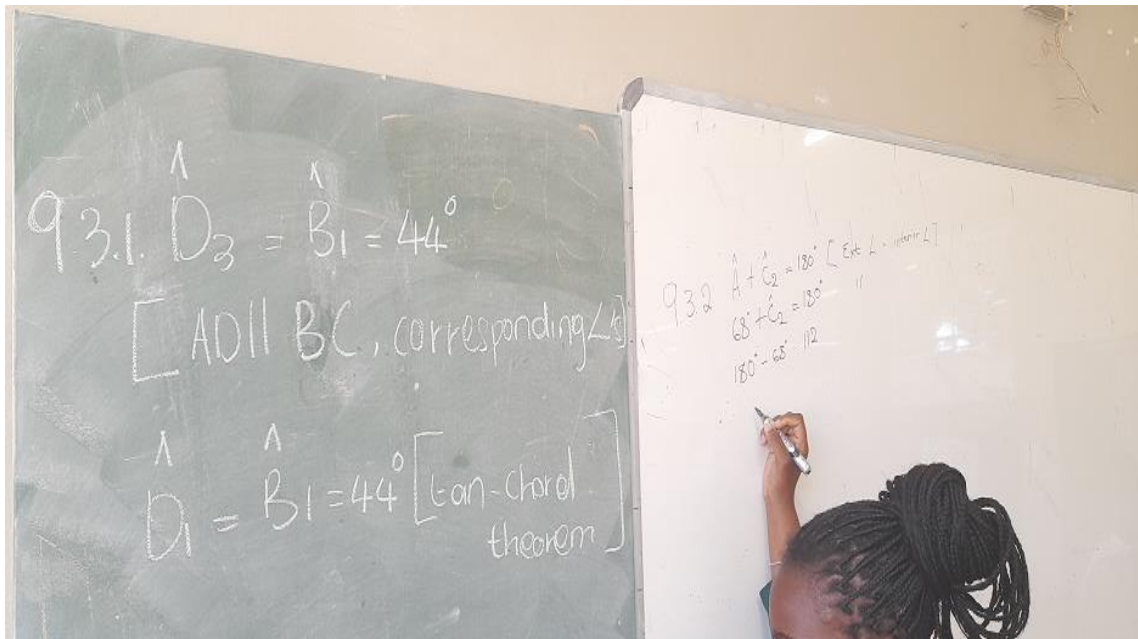 9.3.1. D̂₃ = B̂₁ = 44°
[AD || BC, corresponding ∠'s]
D̂₁ = B̂₁ = 44° [tan-chord
theorem]
9.3.2 Â + Ĉ₂ = 180° [Ext ∠ = interior ∠]
68° + Ĉ₂ = 180° "
180° - 68° = 112